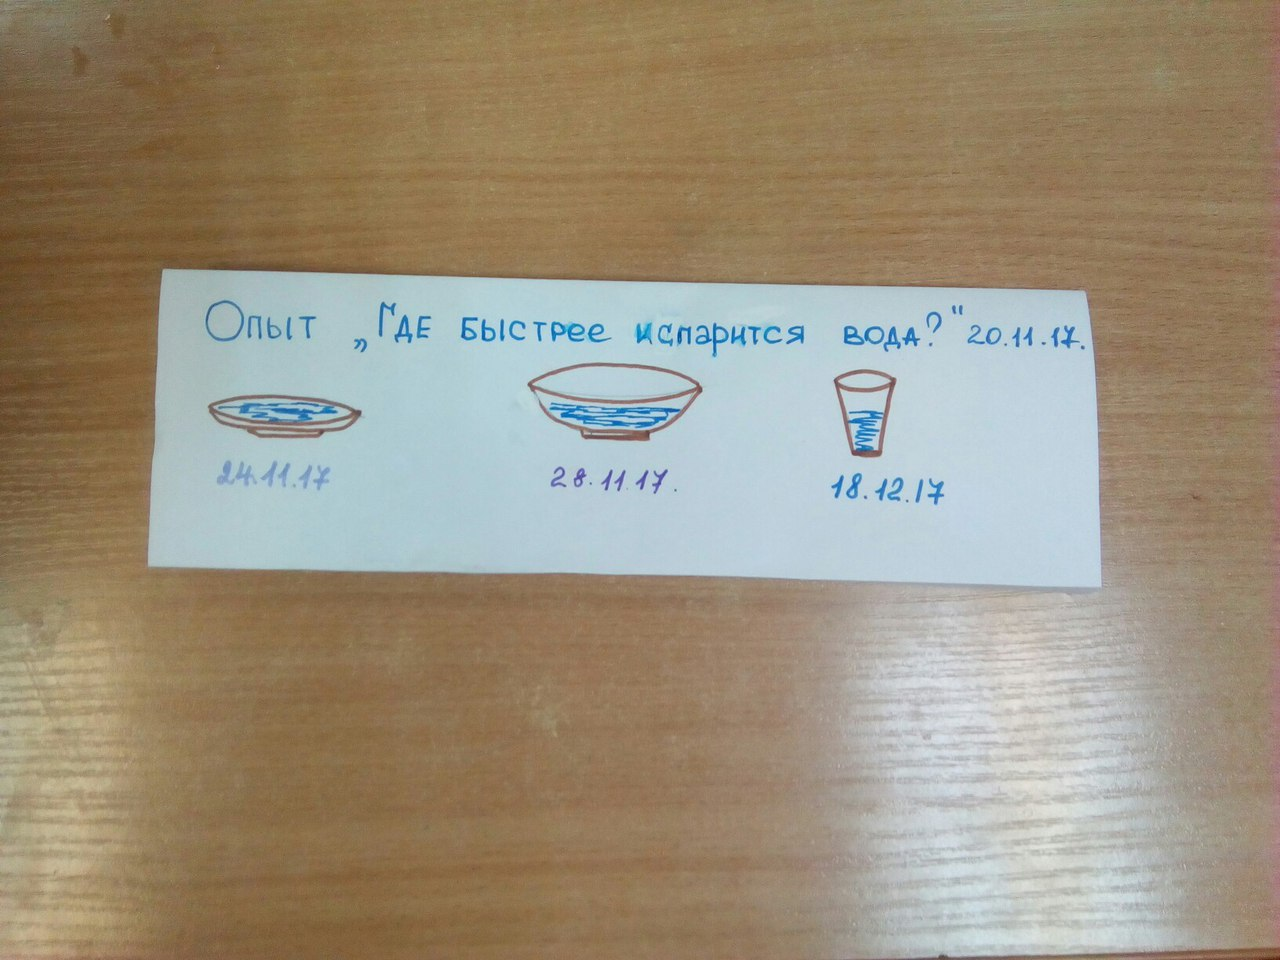 Опыт „Где быстрее испарится вода?" 20.11.17.
24.11.17 28.11.17. 18.12.17